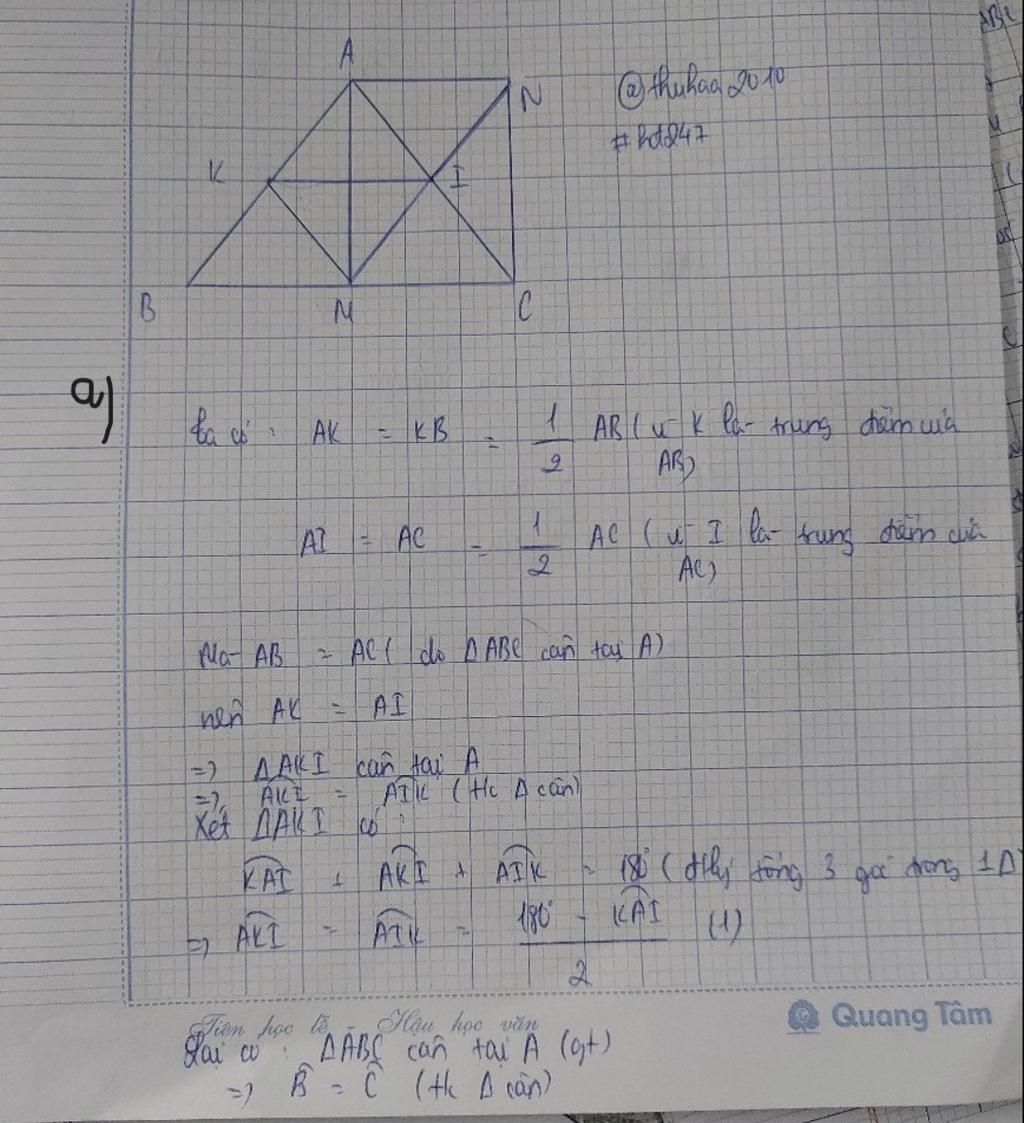 ABC
A
N
@thuhaa2010
#hd247
K
I
B
M
C
a)
Ta có: AK = KB = 1/2 AB (vì K là trung điểm của AB)
AI = AC = 1/2 AC (vì I là trung điểm của AC)
Mà AB = AC (do ΔABC cân tại A)
nên AK = AI
=> ΔAKI cân tại A
=> \widehat{AKI} = \widehat{AIK} (t/c Δ cân)
Xét ΔAKI có:
\widehat{KAI} + \widehat{AKI} + \widehat{AIK} = 180° (đlý tổng 3 góc trong 1Δ)
=> \widehat{AKI} = \widehat{AIK} = (180° - \widehat{KAI})/2 (1)
Tiên học lễ - Hậu học văn
Quang Tâm
Lại có: ΔABC cân tại A (gt)
=> \widehat{B} = \widehat{C} (t/c Δ cân)